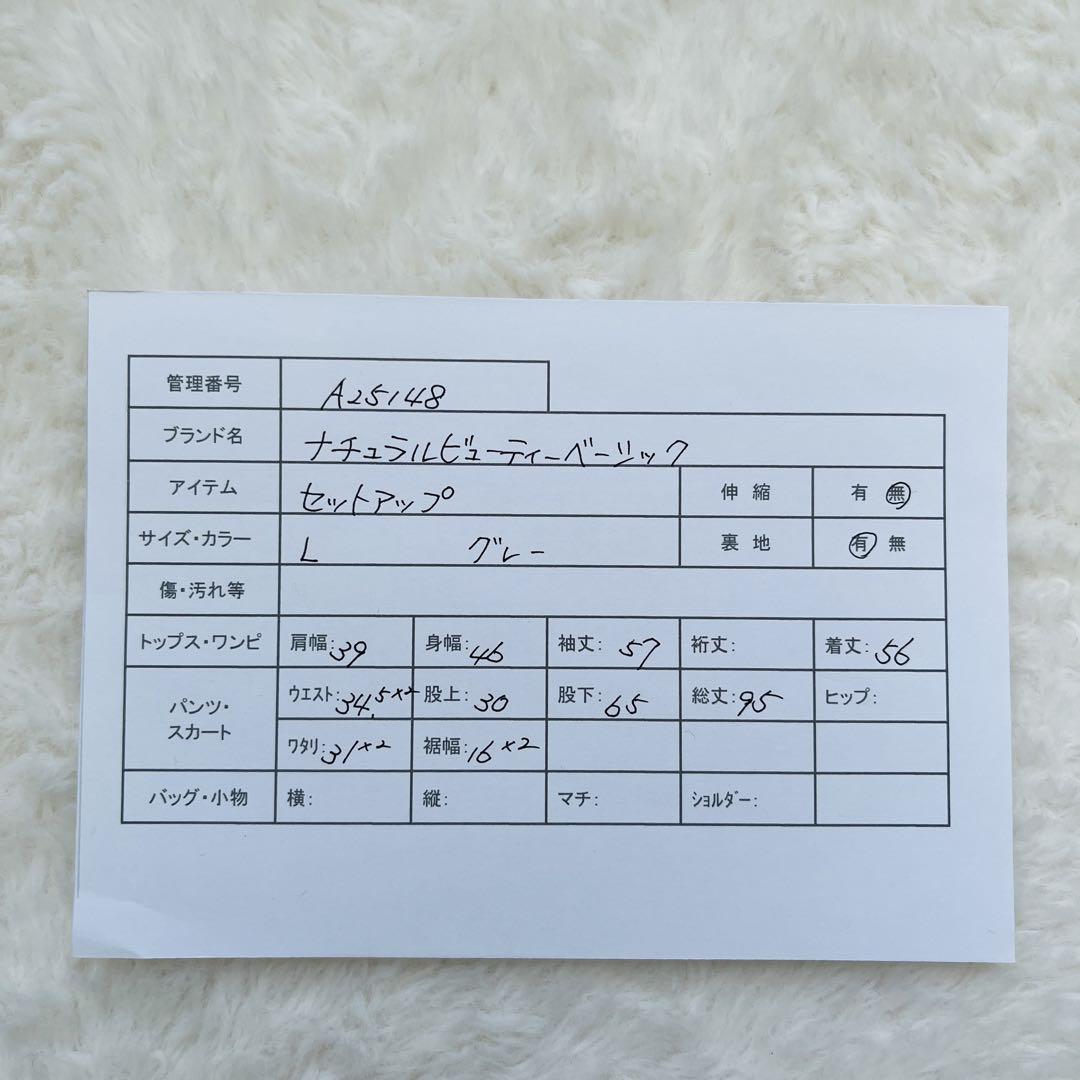 管理番号 A25148
ブランド名 ナチュラルビューティーベーシック
アイテム セットアップ 伸縮 有 無
サイズ・カラー L グレー 裏地 有 無
傷・汚れ等
トップス・ワンピ 肩幅:39 身幅:46 袖丈:57 裄丈: 着丈:56
パンツ・スカート ウエスト:34.5×2 股上:30 股下:65 総丈:95 ヒップ:
ワタリ:31×2 裾幅:16×2
バッグ・小物 横: 縦: マチ: ショルダー: